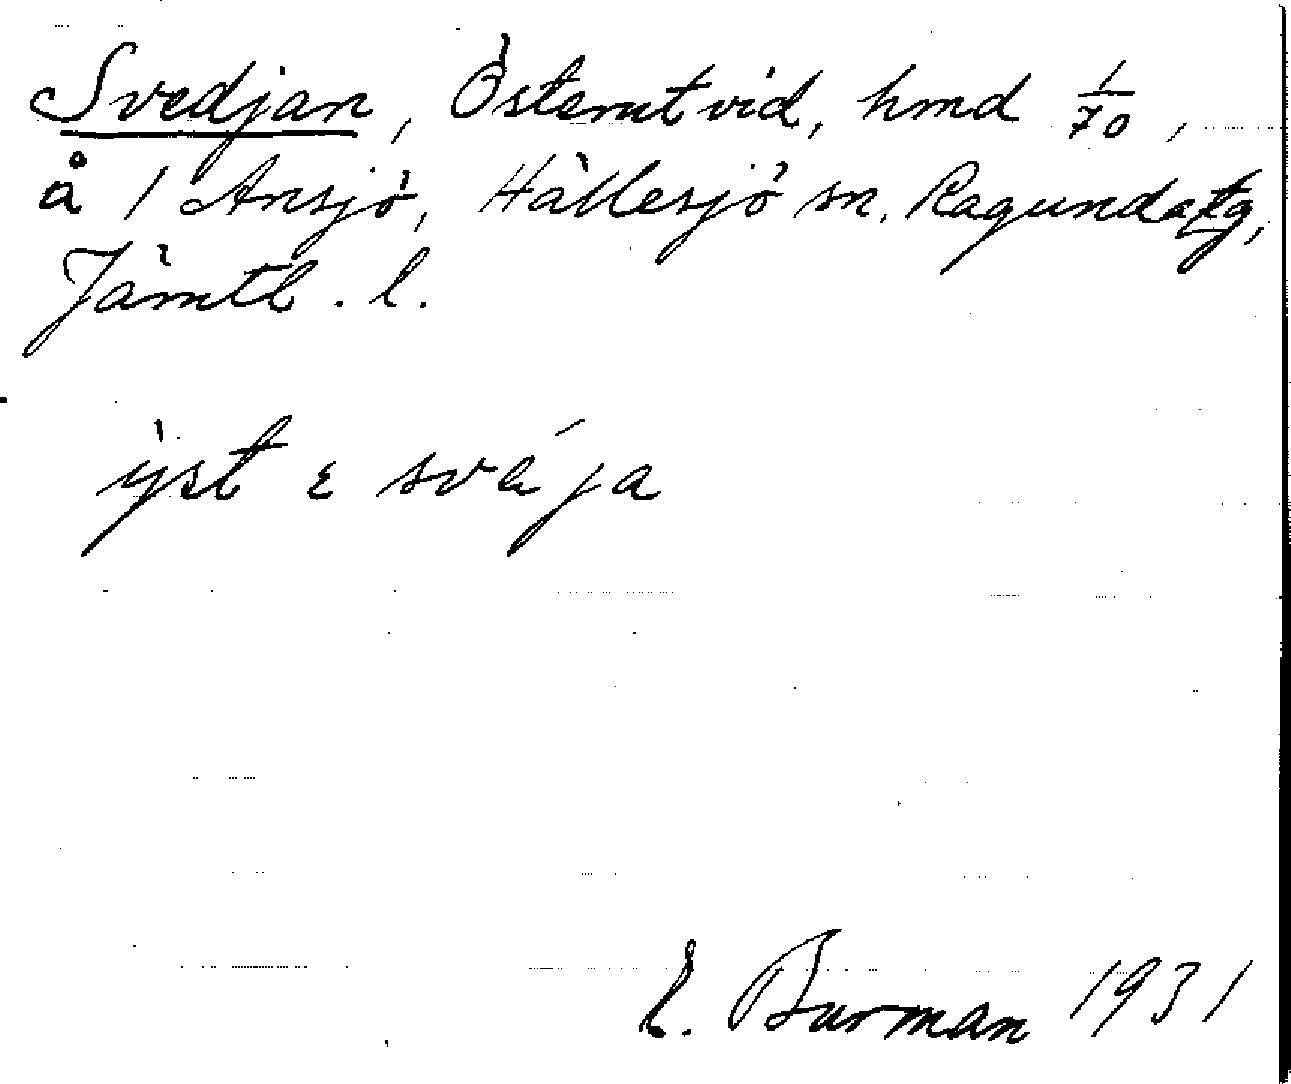 Svedjan, Östemt vid, hmd 1/70,
å 1 Ansjö, Hällesjö sn. Ragunda tg,
Jämtl. l.
ÿst ε svéja
E. Burman 1931